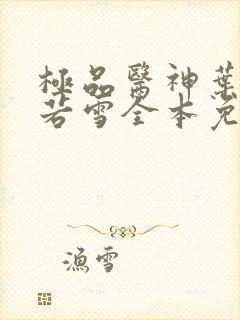 極品醫神葉
若雪全本免
漁雪